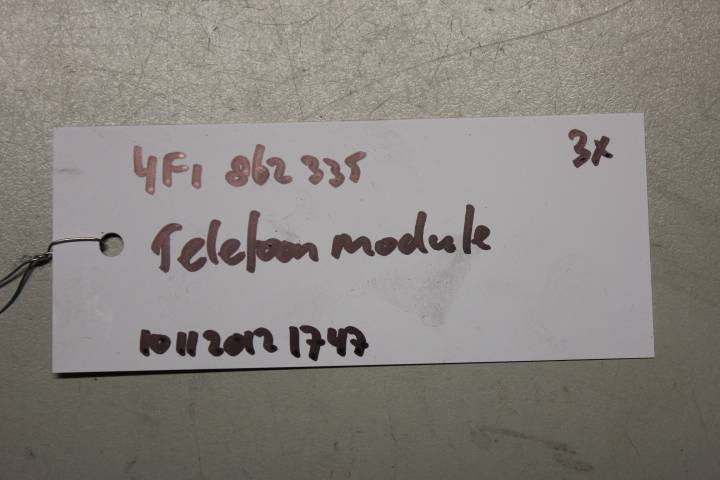 4F1 862 335
3x
Telefoon module
10112012 1747